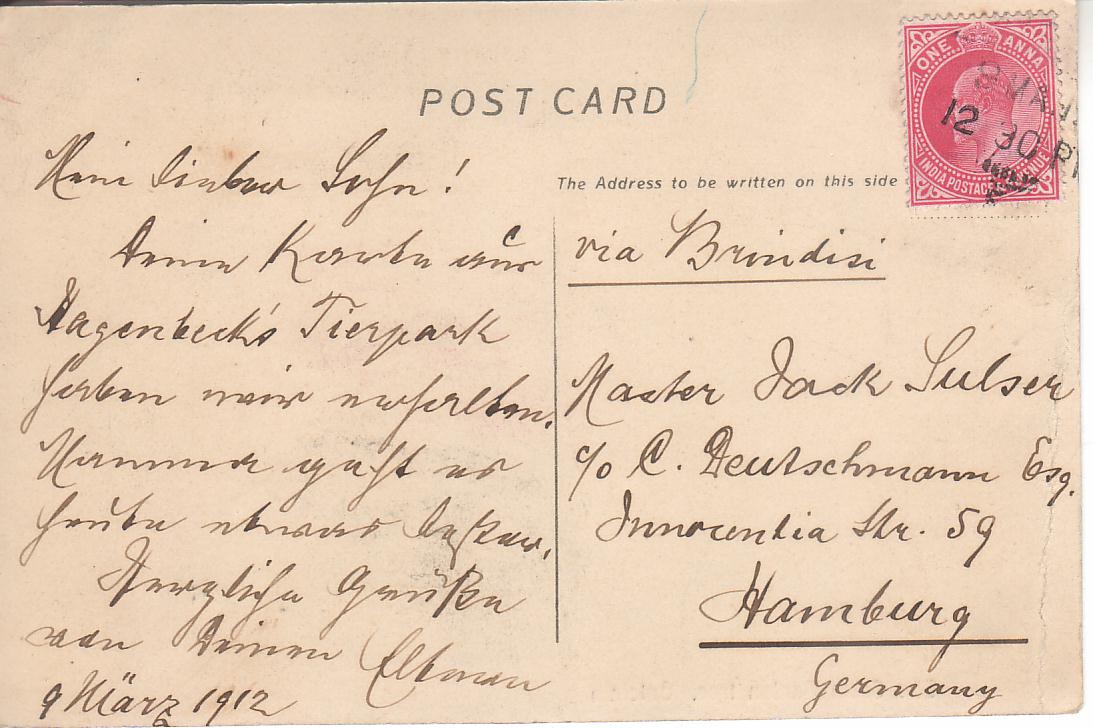 POST CARD
ONE ANNA
INDIA POSTAGE & REVENUE
12 30 P
The Address to be written on this side
Mein lieber Sohn!
Deine Karte aus
Hagenbeck's Tierpark
haben wir erhalten.
Mamma geht es
heute etwas besser.
Herzliche Grüße
von Deinen Eltern
9 März 1912
via Brindisi
Master Jack Sulser
c/o C. Deutschmann Esq.
Innocentia Str. 59
Hamburg
Germany